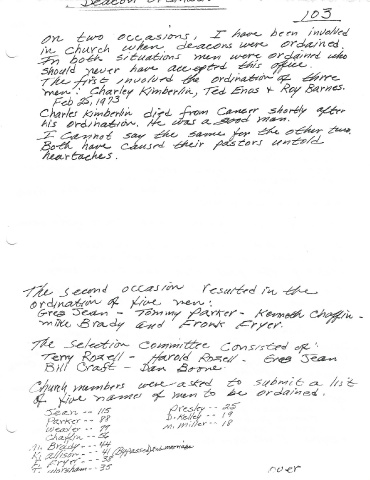 Deacon
103
On two occasions, I have been involved
in church when deacons were ordained.
In both situations men were ordained who
should never have accepted this office.
The first involved the ordination of three
men: Charley Kimberlin, Ted Enos & Roy Barnes.
Feb 25, 1973
Charles Kimberlin died from Cancer shortly after
his ordination. He was a good man.
I cannot say the same for the other two.
Both have caused their pastors untold
heartaches.
The second occasion resulted in the
ordination of five men:
Greg Jean - Tommy Parker - Kenneth Chaffin -
Mike Brady and Frank Fryer.
The selection committee consisted of:
Terry Rozell - Harold Rozell - Greg Jean
Bill Craft - Dan Boone.
Church members were asked to submit a list
of five names of men to be ordained.
Jean -- 115
Parker -- 88
Weaver -- 77
Chaffin -- 56
M. Brady -- 44
Allison -- 41 (Bypassed) marriage
Fryer -- 38
Worsham -- 35
Presley -- 25
D. Kelley -- 19
M. Miller -- 18
over